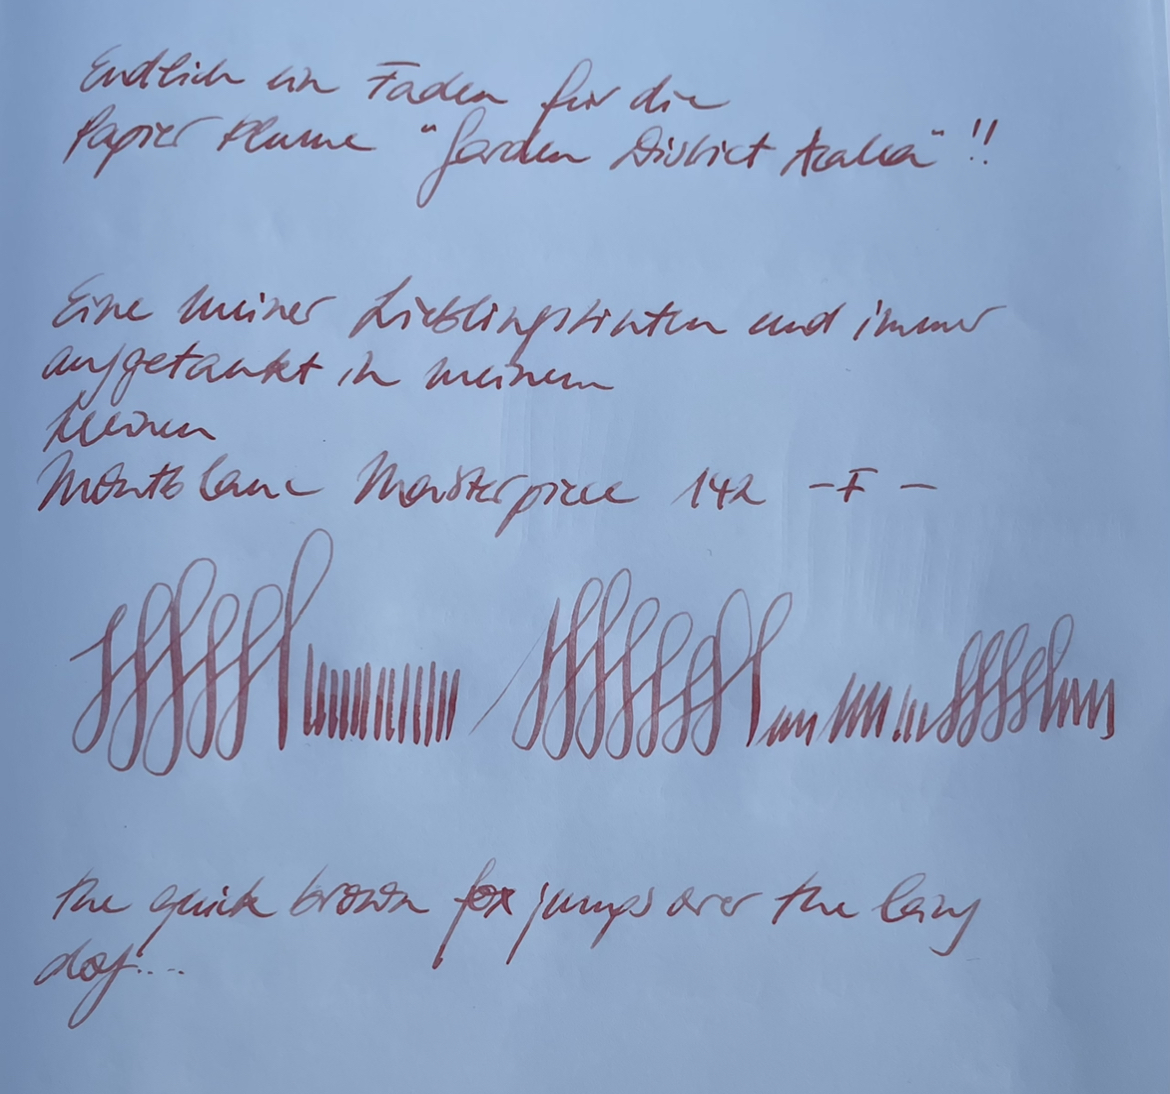 Endlich ein Faden für die
Papier Plume "Garden District Azalea" !!
Eine meiner Lieblingstinten und immer
aufgetankt in meinem
kleinen
Montblanc Meisterpiece 142 - F -
the quick brown fox jumps over the lazy
dog....